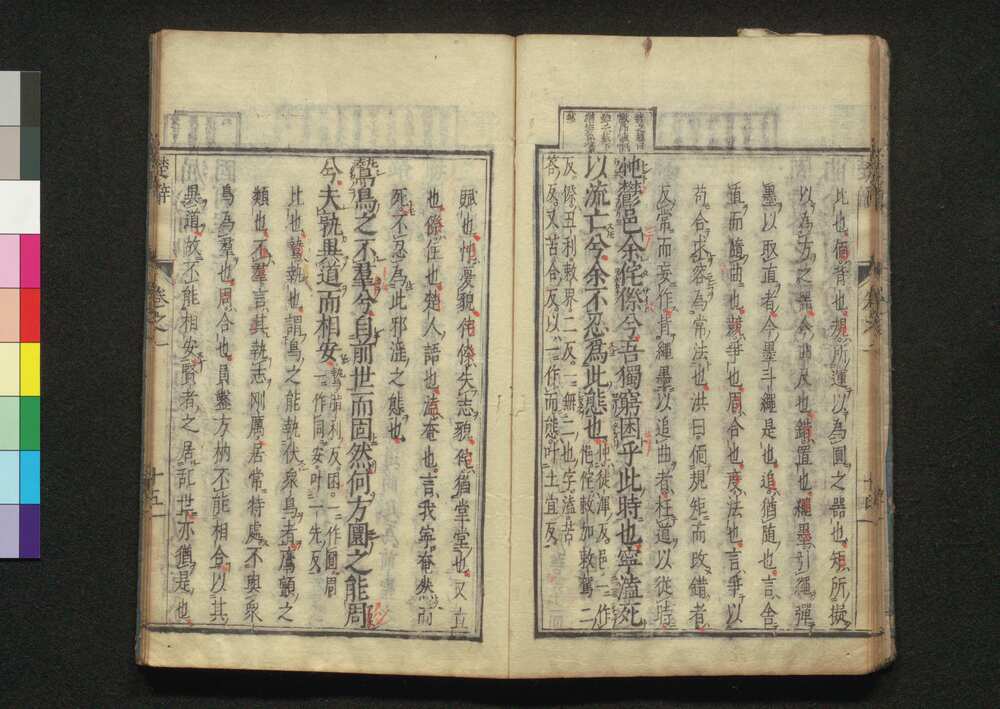 比也偭背也規所運以為圓之器也矩所擬
以為方之器今曲尺也錯置也繩墨引繩彈
墨以取直者今墨斗繩是也追猶隨也言舍
直而隨曲也競爭也周合也度法也言爭以
苟合求容為常法也洪曰偭規矩而改錯者
反常而妄作背繩墨以追曲者枉道以從時
忳鬱邑余侘傺兮吾獨窮困乎此時也寧溘死
以流亡兮余不忍為此態也
忳徒渾反邑一作
悒侘敕加敕駕二
反傺丑利敕界二反一無二也字溘苦
荅反又苦合反以一作而態叶土宜反
賦也忳憂貌侘傺失志貌侘猶堂堂也又立
也傺住也楚人語也溘奄也言我寧奄然而
死不忍為此邪淫之態也
鷙鳥之不羣兮自前世而固然何方圜之能周
兮夫孰異道而相安
鷙脂利反圜一作圓周
一作同安叶一先反
比也鷙執也謂鳥之能執伏衆鳥者鷹鸇之
類也不羣言其執志剛厲居常特處不與衆
鳥為羣也周合也員鑿方枘不能相合以其
異道故不能相安賢者之居亂世亦猶是也
楚辭
卷之一
十五